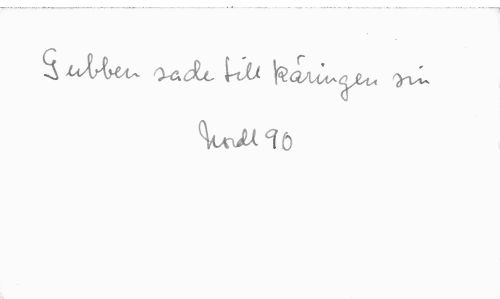 Gubben sade till käringen sin
Nordl 90